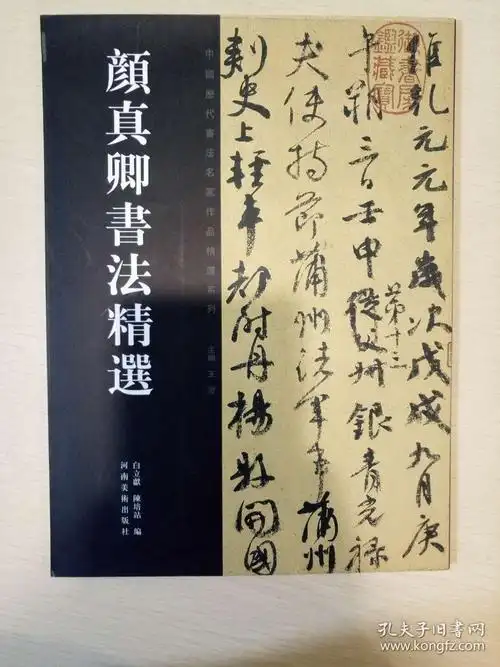 顏真卿書法精選
中國歷代書法名家作品精選系列
主編 王澄
白立獻 陳培站 編
河南美術出版社
御書房
鑑藏寶
維乾元元年歲次戊戌九月庚
午朔三日壬申從父州銀青光祿
第十三
夫使持節蒲州諸軍事蒲州
刺史上輕車都尉丹楊縣開國
孔夫子旧书网
www.kongfz.com